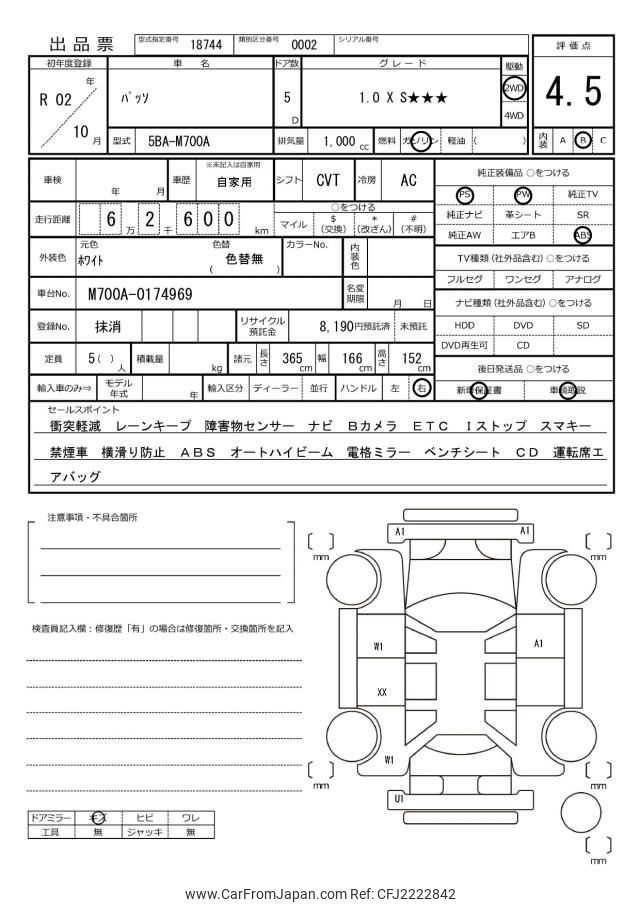 出品票
型式指定番号 18744 類別区分番号 0002 シリアル番号
評価点
4.5
初年度登録 車名 ドア数 グレード 駆動
R 02 年 10 月
パッソ
5 D
1.0 X S★★★
2WD
4WD
型式 5BA-M700A 排気量 1,000 cc 燃料 ガソリン 軽油 ( )
内装 A B C
車検 年 月 車歴 ※未記入は自家用 自家用 シフト CVT 冷房 AC
純正装備品 ○をつける
PS PW 純正TV
純正ナビ 革シート SR
純正AW エアB ABS
走行距離 6 万 2 千 6 0 0 km
○をつける
マイル $(交換) *(改ざん) #(不明)
外装色 元色 ホワイト 色替 ( 色替無 ) カラーNo. 内装色
TV種類(社外品含む)○をつける
フルセグ ワンセグ アナログ
車台No. M700A-0174969 名変期限 月 日
ナビ種類(社外品含む)○をつける
HDD DVD SD
DVD再生可 CD
登録No. 抹消 リサイクル預託金 8,190円預託済 未預託
定員 5( )人 積載量 kg 諸元 長さ 365 cm 幅 166 cm 高さ 152 cm
後日発送品 ○をつける
新車保証書 車輌取説
輸入車のみ⇒ モデル年式 年 輸入区分 ディーラー 並行 ハンドル 左 右
セールスポイント
衝突軽減 レーンキープ 障害物センサー ナビ Bカメラ ETC Iストップ スマキー
禁煙車 横滑り防止 ABS オートハイビーム 電格ミラー ベンチシート CD 運転席エ
アバッグ
注意事項・不具合箇所
検査員記入欄:修復歴「有」の場合は修復箇所・交換箇所を記入
A1 A1
[ ] mm
[ ] mm
W1
A1
XX
W1
U1
[ ] mm
[ ] mm
[ ] mm
ドアミラー キズ ヒビ ワレ
工具 無 ジャッキ 無
www.CarFromJapan.com Ref: CFJ2222842